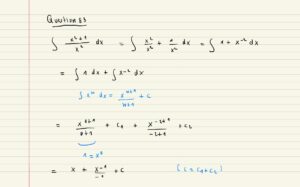 Question 83
∫ x²+1/x² dx = ∫ x²/x² + 1/x² dx = ∫ 1 + x⁻² dx
= ∫ 1 dx + ∫ x⁻² dx
∫ xⁿ dx = xⁿ⁺¹/n+1 + c
= x⁰⁺¹/0+1 + c₁ + x⁻²⁺¹/-2+1 + c₂
1 = x⁰
= x + x⁻¹/-1 + c (c = c₁ + c₂)